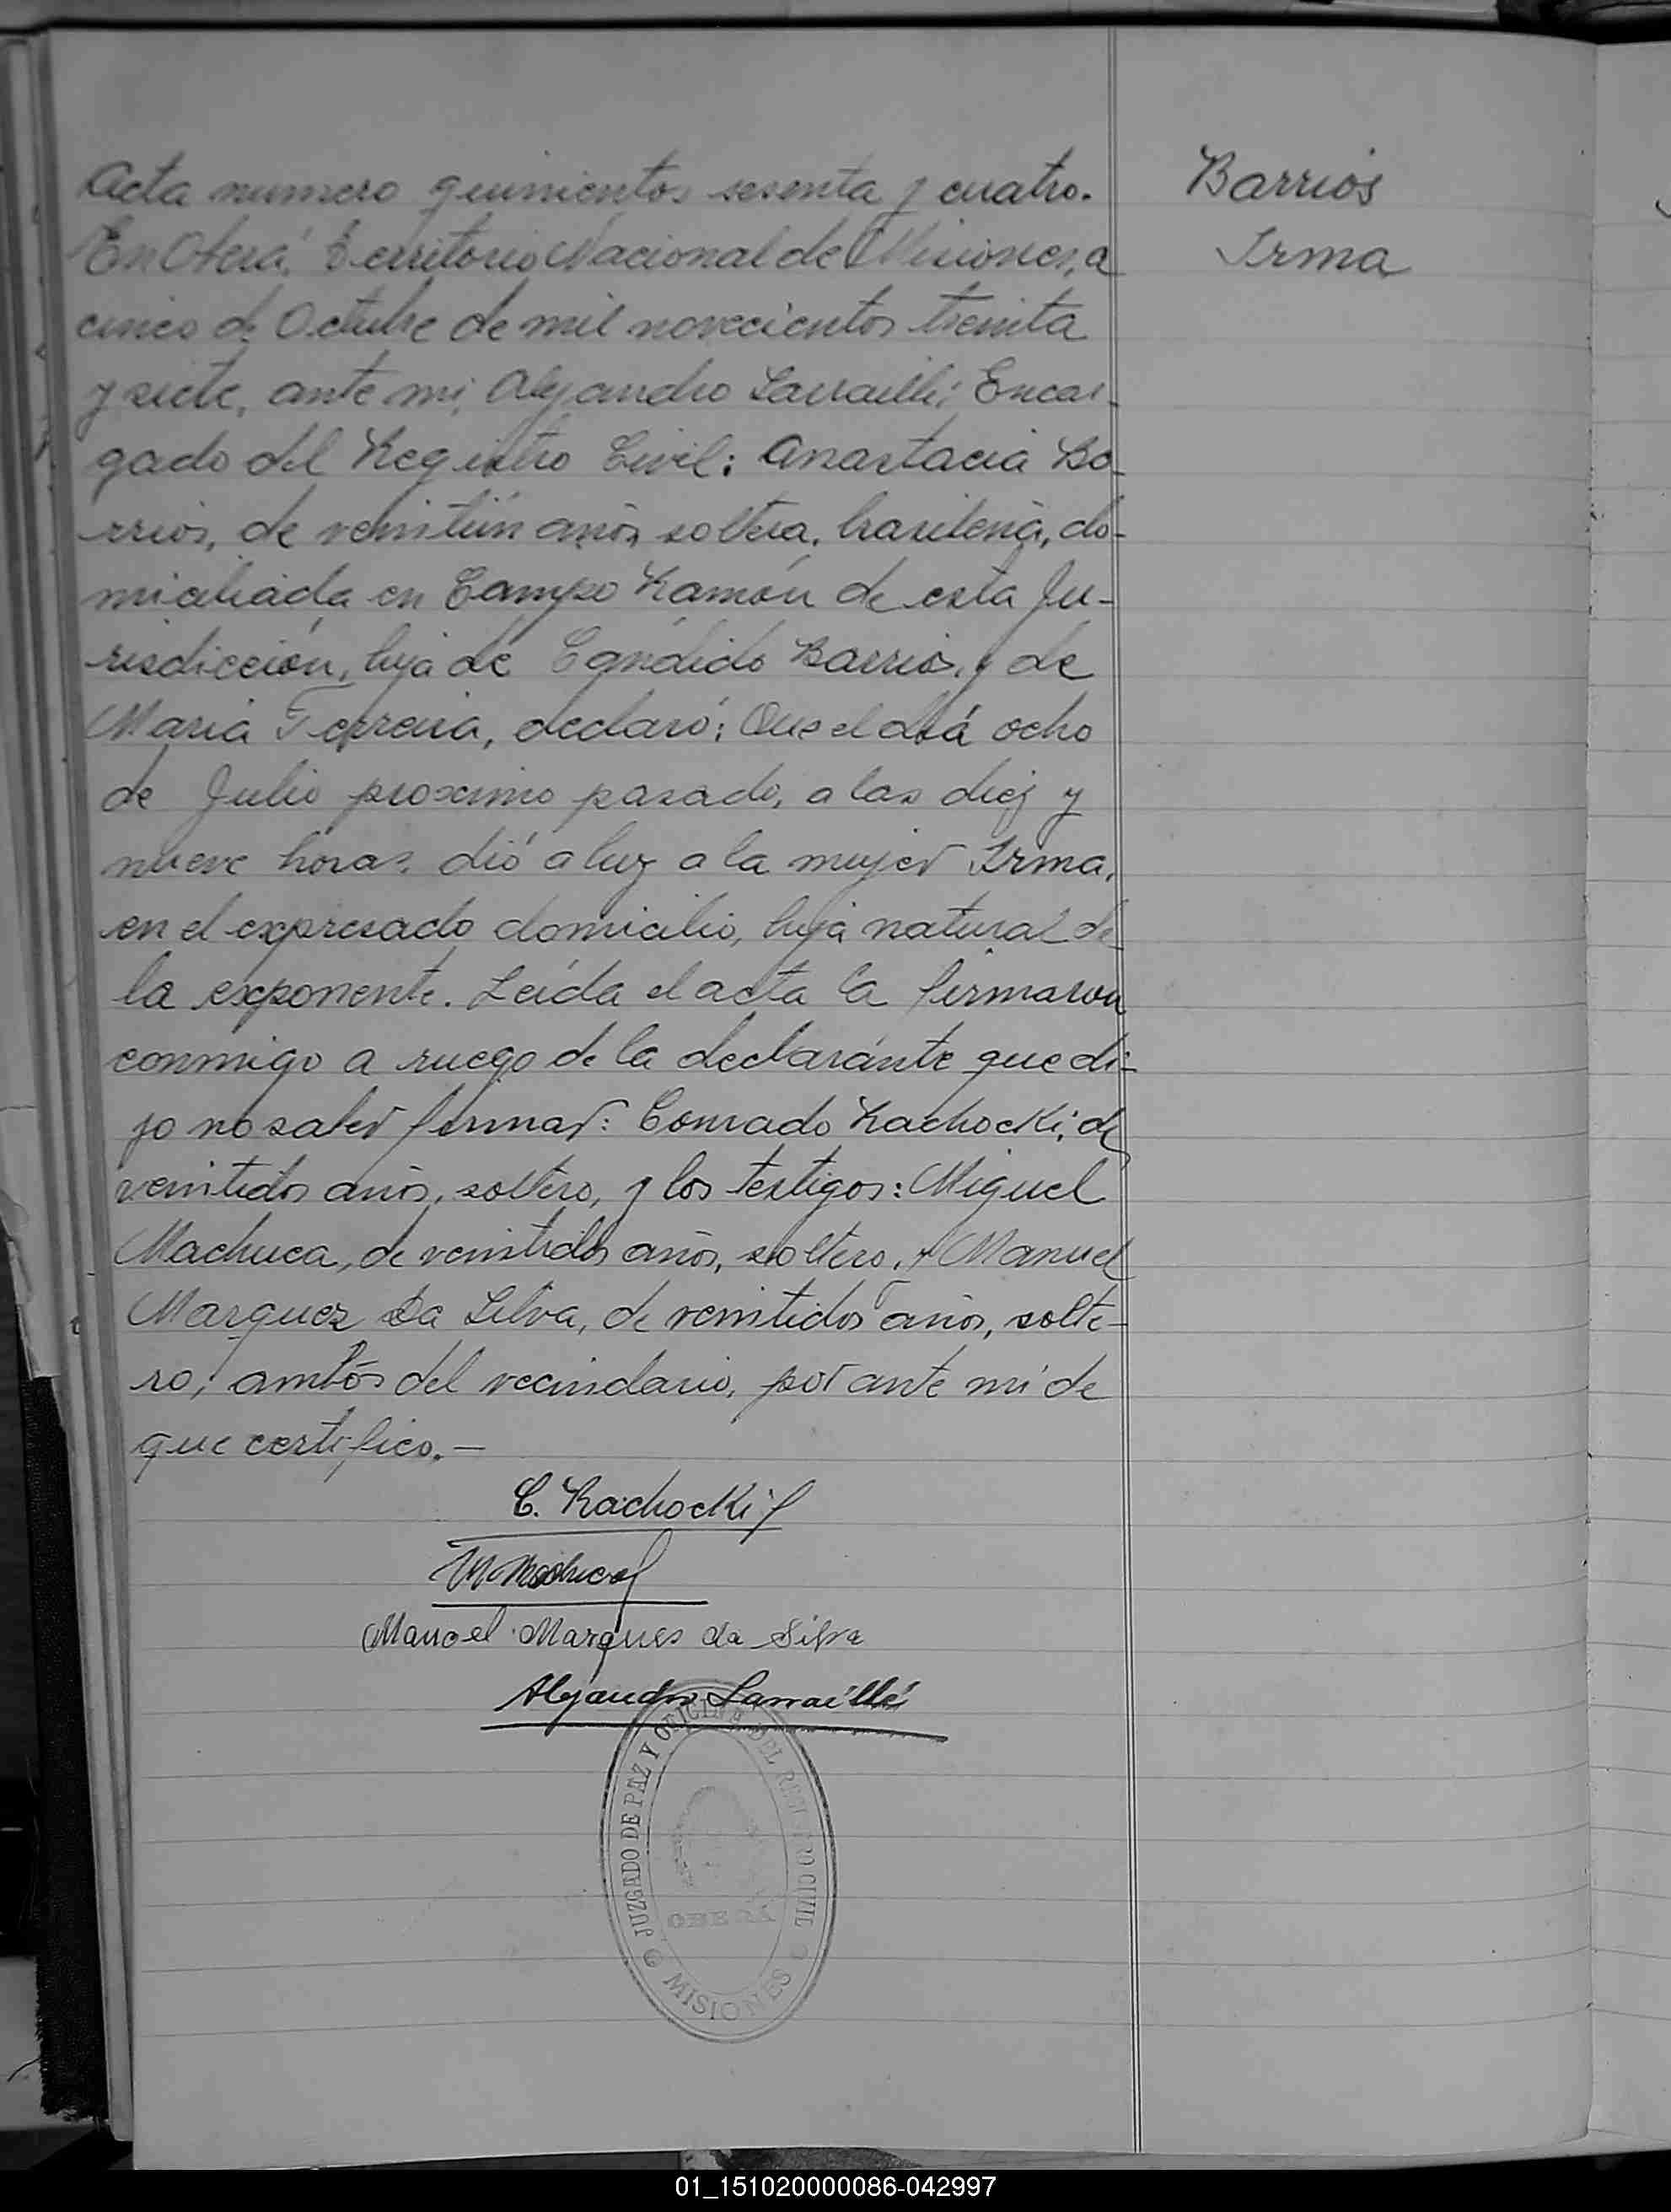 Acta numero quinientos sesenta y cuatro.
En Oberá, Territorio Nacional de Misiones, a
cinco de Octubre de mil novecientos treinta
y siete, ante mi, Alejandro Larraillé; Encar-
gado del Registro Civil: Anastacia Ba-
rrios, de veintiún años, soltera, brasileña, do-
miciliada en Campo Ramón de esta Ju-
risdicción, hija de Cándido Barrios, y de
Maria Ferreira, declaró: Que el día ocho
de Julio proximo pasado, a las diez y
nueve horas, dió a luz a la mujer Irma,
en el expresado domicilio, hija natural de
la exponente. Leída el acta la firmaron
conmigo a ruego de la declarante que di-
jo no saber firmar: Conrado Rachocki, de
veintidos años, soltero, y los testigos: Miguel
Machuca, de veintidos años, soltero, y Manuel
Marquez Da Silva, de veintidos años, solte-
ro, ambos del vecindario, por ante mi de
que certifico.—
C. Rachocki
M Machuca
Manoel Marques da Silva
Alejandro Larraillé
JUZGADO DE PAZ Y OFICINA DEL REGISTRO CIVIL
OBERÁ
MISIONES
Barrios
Irma
01_151020000086-042997